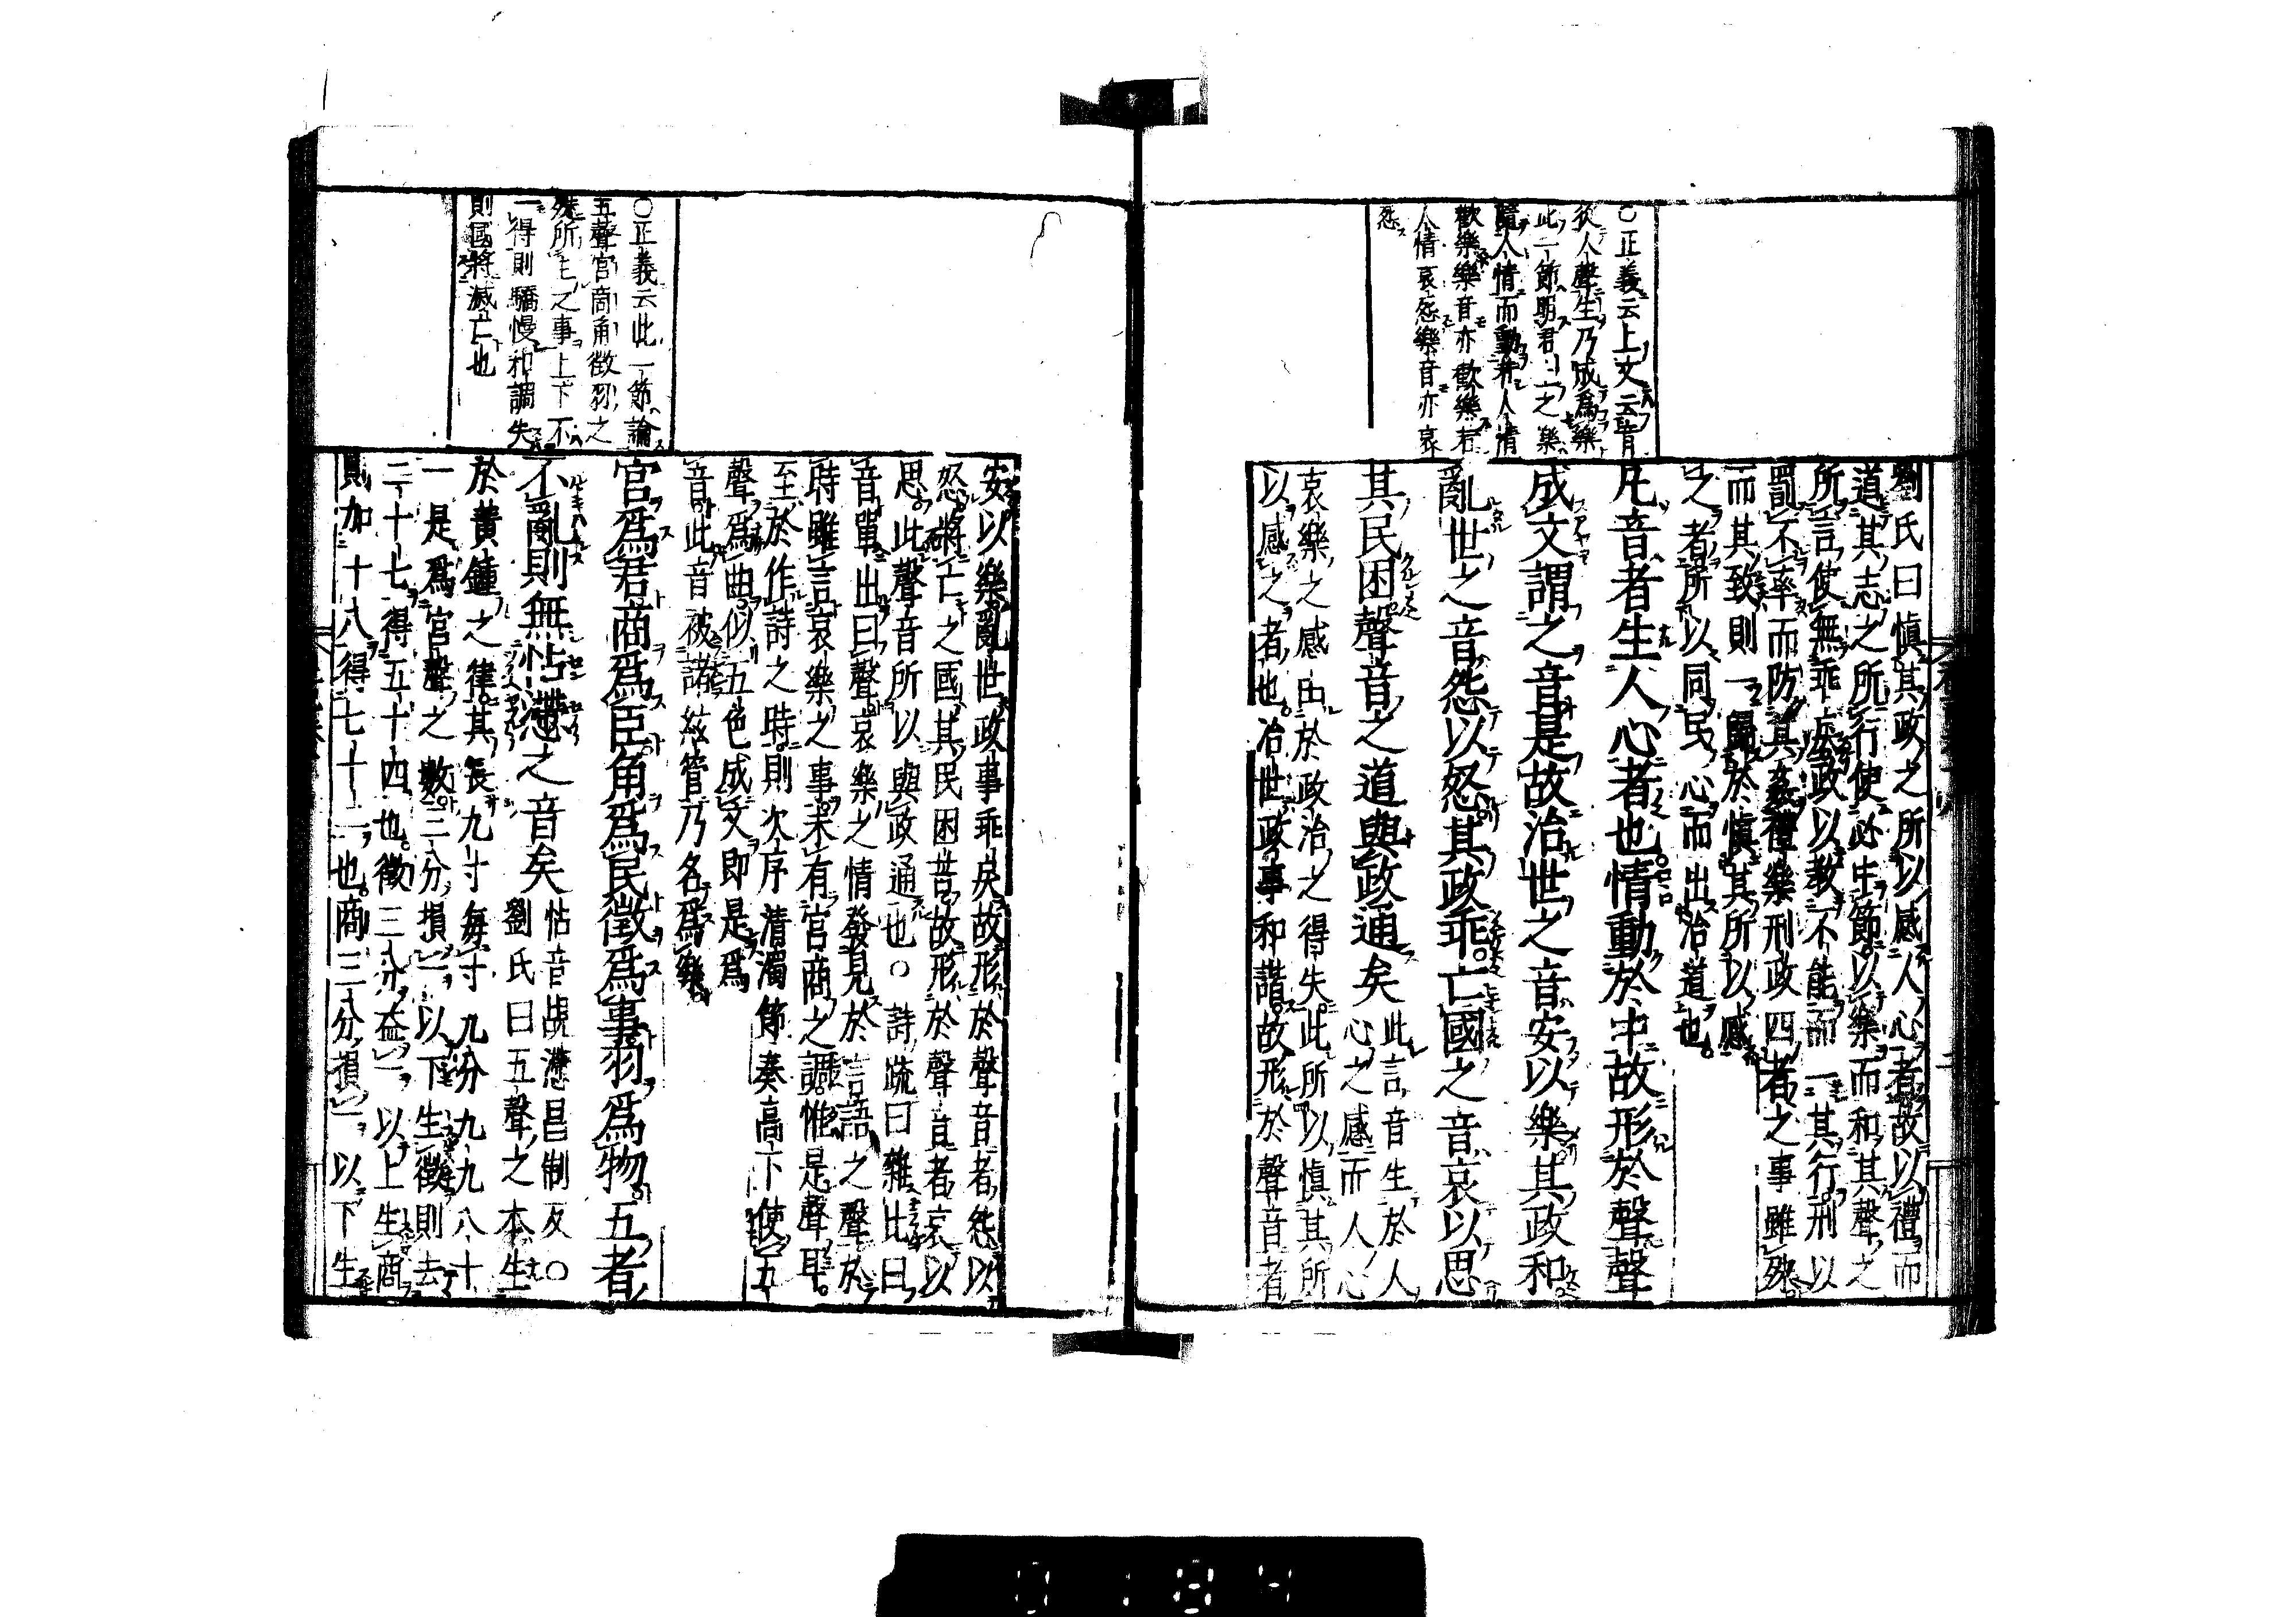 ○正義云上文云音
從人聲生乃成爲樂
此一節明君上之樂
隨人情而動若人情
歡樂樂音亦歡樂若
人情哀怨樂音亦哀
怨
劉氏曰愼其政之所以感人心者故以禮而
道其志之所行使必中節以樂而和其聲之
所言使無乖戾政以教不能而一其行刑以
罰不率而防其姦禮樂刑政四者之事雖殊
而其致則一歸於愼其所以感
之者所以同民心而出治道也
凡音者生人心者也情動於中故形於聲聲
成文謂之音是故治世之音安以樂其政和
亂世之音怨以怒其政乖亡國之音哀以思
其民困聲音之道與政通矣
此言音生於人
心之感而人心
哀樂之感由於政治之得失此所以愼其所
以感之者也治世政事和諧故形於聲音者
○正義云此一節論
五聲宮商角徵羽之
殊所主之事上下不
一得則驕慢和調失
則國將滅亡也
安以樂亂世政事乖戾故形於聲音者怨以
怒將亡之國其民困苦故形於聲音者哀以
思此聲音所以與政通也○詩疏曰雜比曰
音單出曰聲哀樂之情發見於言語之聲於
時雖言哀樂之事未有宮商之調惟是聲耳
至於作詩之時則次序清濁節奏高下使五
聲爲曲似五色成文即是爲
音此音被諸絃管乃名爲樂
宮爲君商爲臣角爲民徵爲事羽爲物五者
不亂則無怗懘之音矣
怗音覘懘昌制反○
劉氏曰五聲之本生
於黃鍾之律其長九寸每寸九分九九八十
一是爲宮聲之數三分損一以下生徵則去
二十七得五十四也徵三分益一以上生商
則加十八得七十二也商三分損一以下生